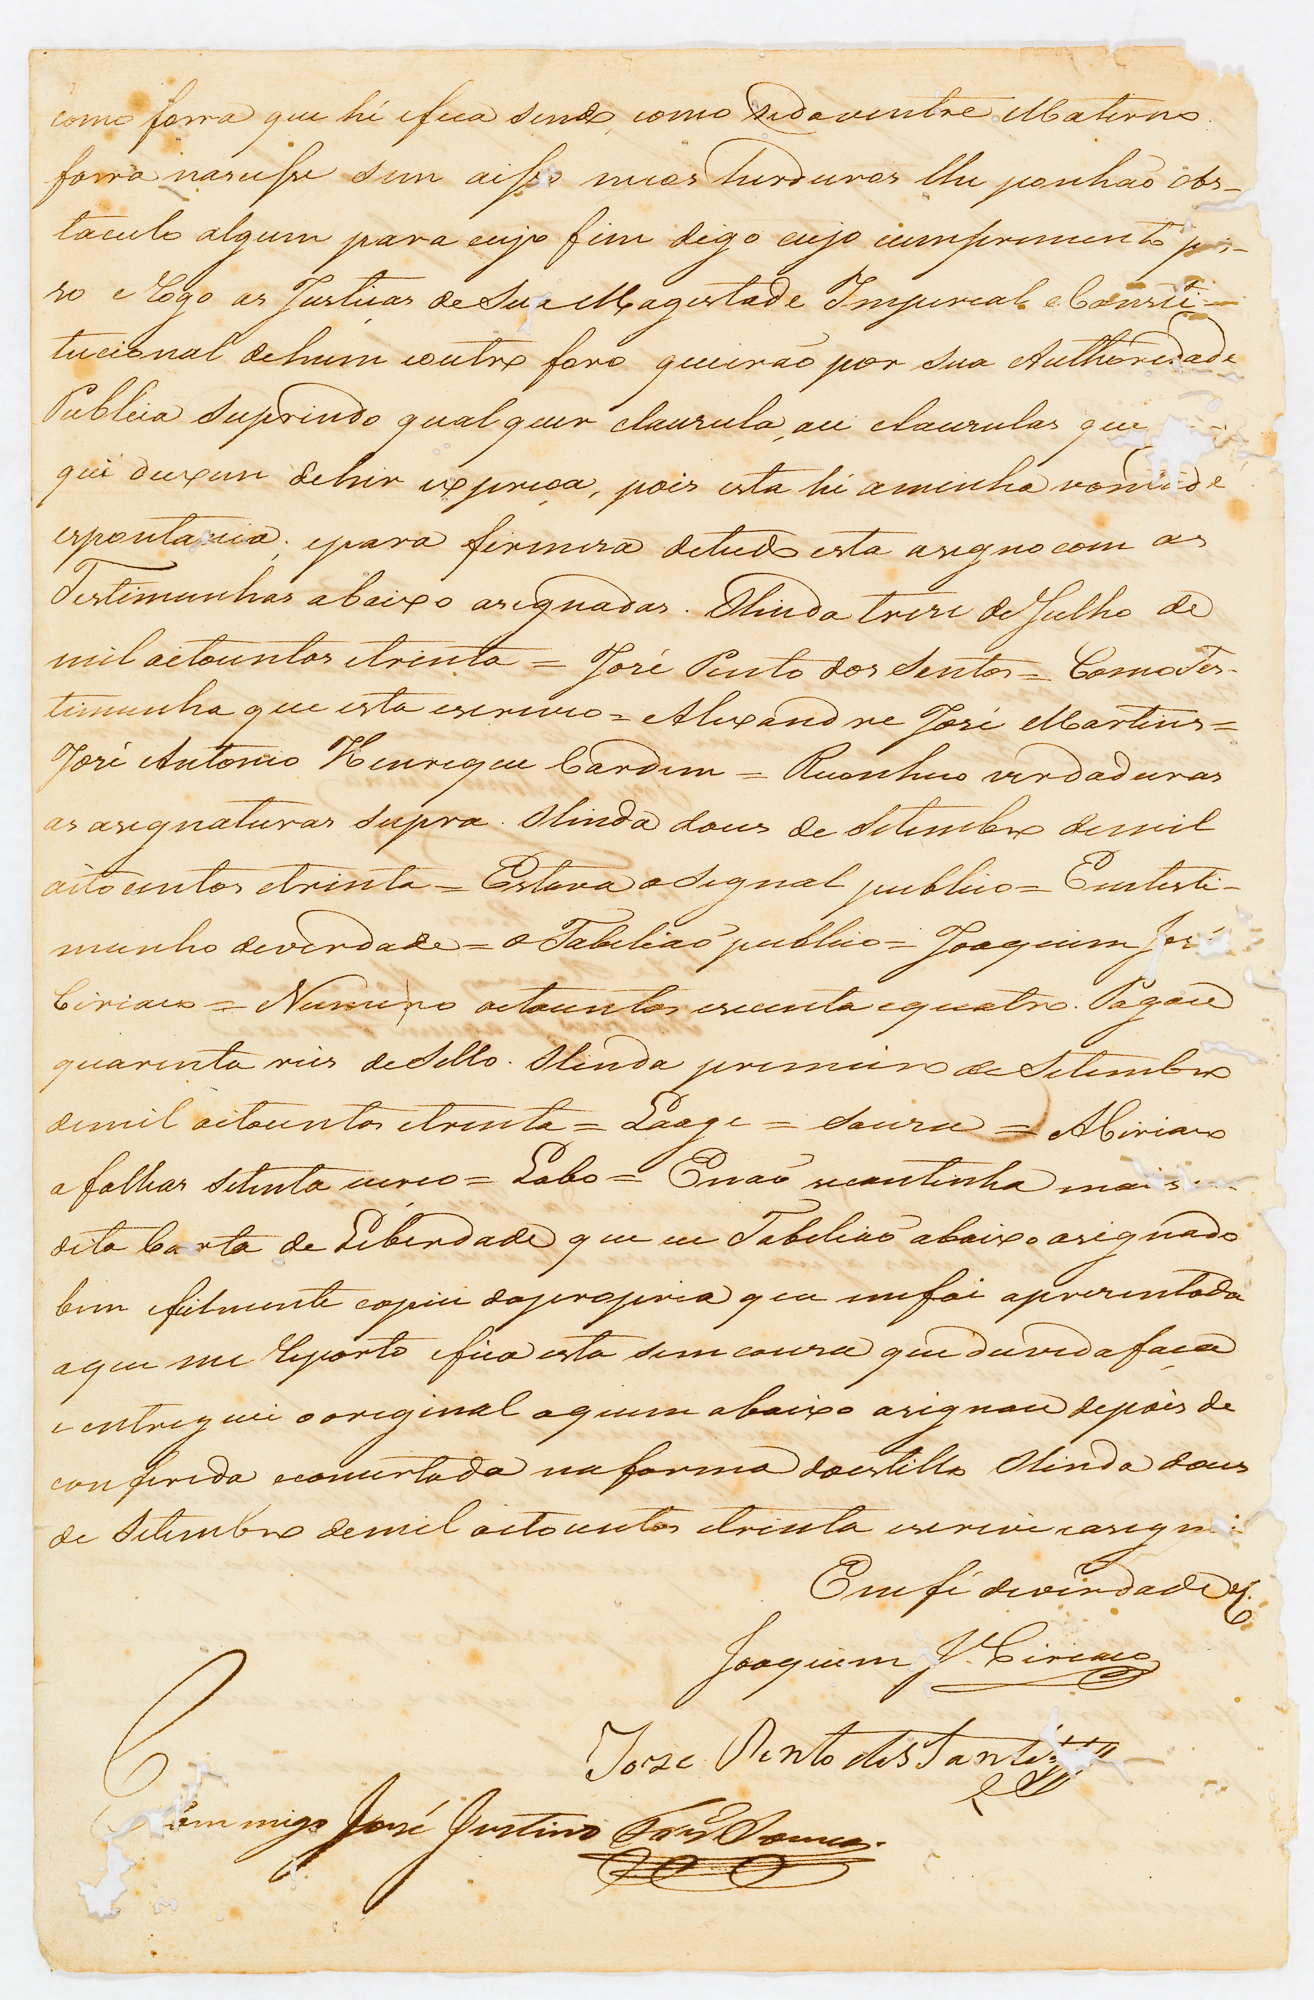 como forra que hé efica sendo, como sedoventre Materno
forra nascesse sem aisso meos Herdeiros lhe ponhão obs-
taculo algum para cujo fim digo cujo cumprimento pe-
so e Rogo as Justiças de Sua Magestade Imperial e Consti-
tucional dehum eoutro foro queirão por sua Authoridade
Publica suprindo qualquer clausula, ou clausulas que
qui deixem dehir expreça, pois esta hé aminha vontade
espontania, epara firmesa detudo esta asigno com as
Testimunhas abaixo asignadas. Olinda trese de Julho de
mil oitocentos etrinta = José Pinto dos Santos = Como Tes-
timunha que esta escreveo = Alexandre José Martins =
José Antonio Henrique Cardim = Reconheco verdadeiras
as asignaturas supra. Olinda dous de Setembro demil
oitocentos etrinta = Estava o Signal publico = Emtesti-
munho deverdade = o Tabelião publico = Joaquim José
Ciriaco = Numero oitocentos esecenta equatro. Pagou
quarenta reis de Sello. Olinda primeiro de Setembro
demil oitocentos etrinta = Lage = Souza = A Ciriaco
afolhas setenta ecinco = Lobo = Enão secontinha mais
dita Carta de Liberdade que eu Tabelião abaixo asignado
bem efielmente copiei dapropria que mefoi apresentada
aque me Reporto efica esta sem cousa que duvida faça
e entreguei ooriginal aquem abaixo asignou depois de
conferida econcertada naforma doestillo Olinda dous
de Setembro demil oitocentos etrinta escrevi easignei
Emfé deverdade
Joaquim Jé Ciriaco
Joze Pinto dos Santos
Commigo José Justino